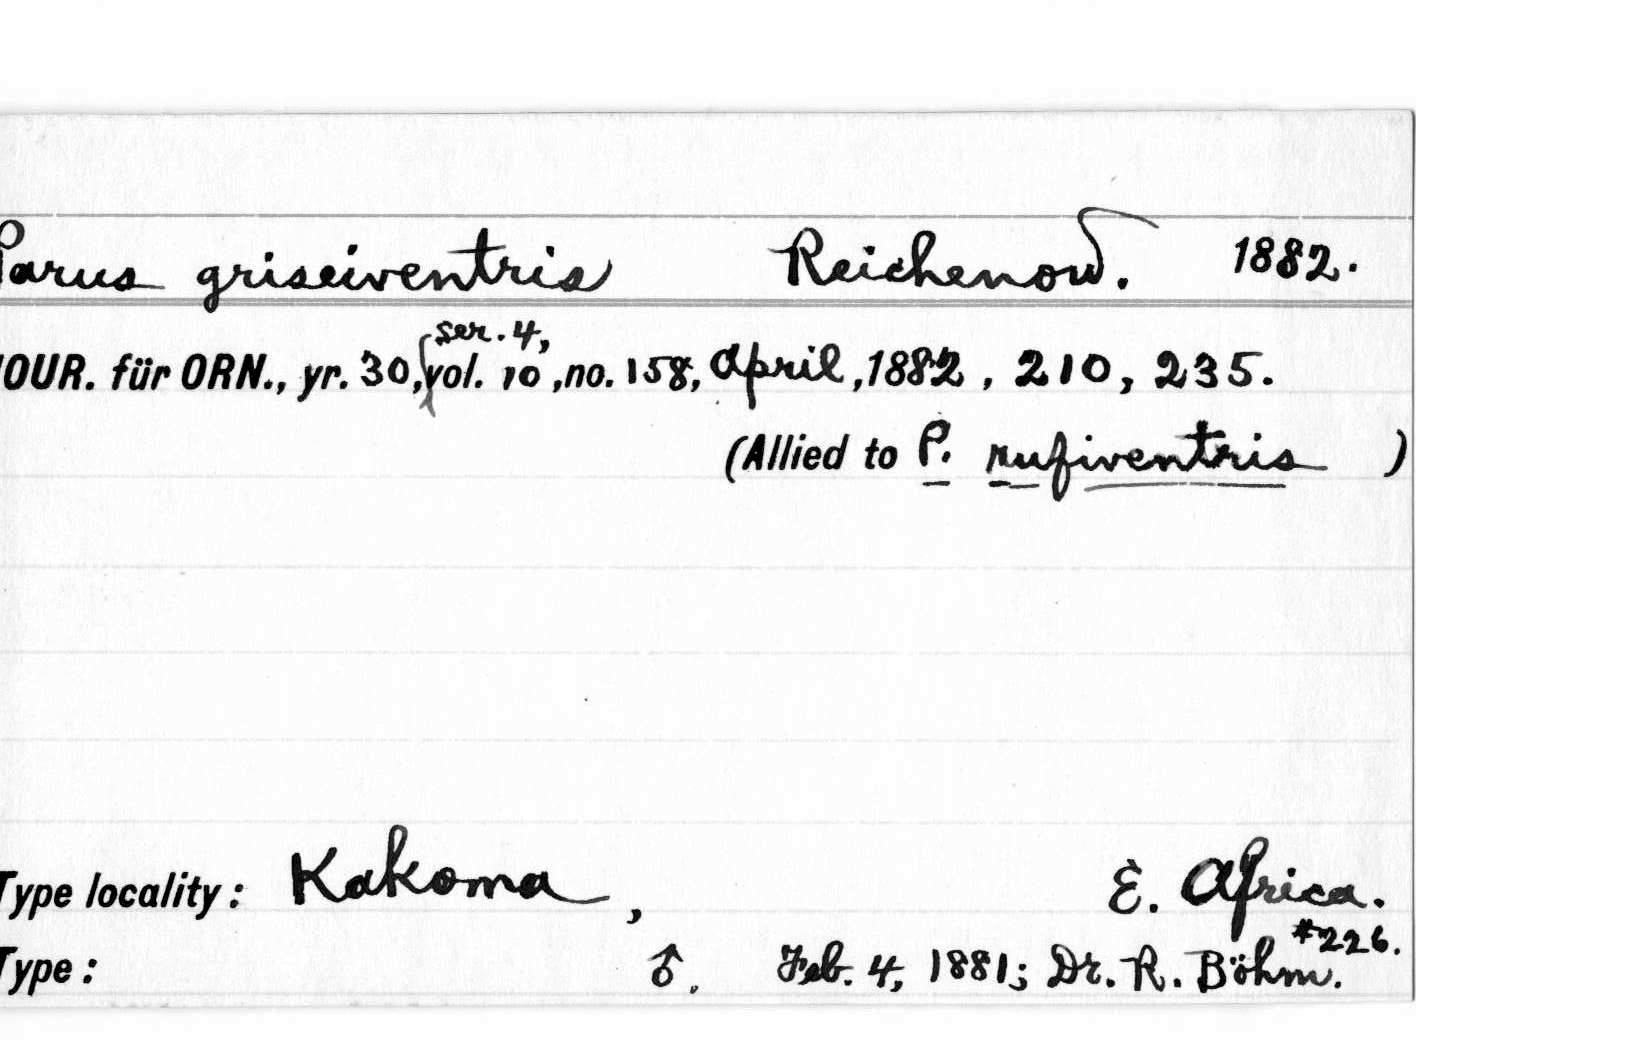 Parus griseiventris Reichenow. 1882.
JOUR. für ORN., yr. 30, ser. 4, vol. 10, no. 158, April, 1882, 210, 235.
(Allied to P. rufiventris )
Type locality: Kakoma, E. Africa.
Type: ♂. Feb. 4, 1881; Dr. R. Böhm. #226.